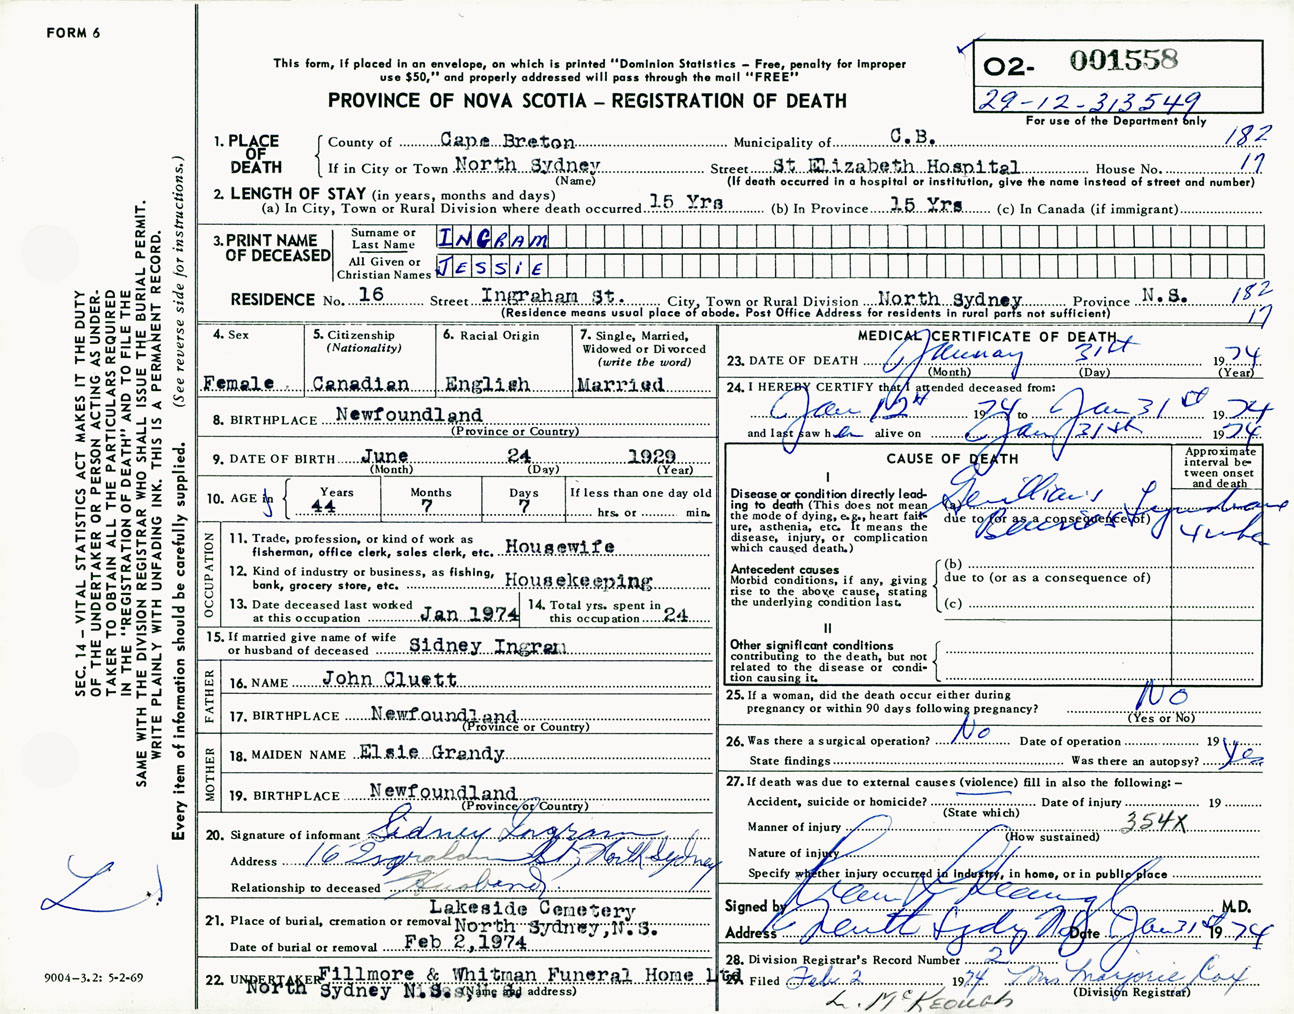 FORM 6
This form, if placed in an envelope, on which is printed "Dominion Statistics – Free, penalty for improper
use $50," and properly addressed will pass through the mail "FREE"
PROVINCE OF NOVA SCOTIA – REGISTRATION OF DEATH
02- 001558
29-12-313549
For use of the Department only
182
17
1. PLACE OF DEATH
County of Cape Breton Municipality of C.B.
If in City or Town North Sydney Street St Elizabeth Hospital House No.
(Name) (If death occurred in a hospital or institution, give the name instead of street and number)
2. LENGTH OF STAY (in years, months and days)
(a) In City, Town or Rural Division where death occurred 15 Yrs (b) In Province 15 Yrs (c) In Canada (if immigrant)
3. PRINT NAME OF DECEASED
Surname or Last Name INGRAM
All Given or Christian Names JESSIE
RESIDENCE No. 16 Street Ingraham St. City, Town or Rural Division North Sydney Province N.S. 182
(Residence means usual place of abode. Post Office Address for residents in rural parts not sufficient) 17
4. Sex
Female
5. Citizenship
(Nationality)
Canadian
6. Racial Origin
English
7. Single, Married,
Widowed or Divorced
(write the word)
Married
8. BIRTHPLACE Newfoundland
(Province or Country)
9. DATE OF BIRTH June 24 1929
(Month) (Day) (Year)
10. AGE
Years Months Days If less than one day old
44 7 7 hrs. or min.
OCCUPATION
11. Trade, profession, or kind of work as
fisherman, office clerk, sales clerk, etc. Housewife
12. Kind of industry or business, as fishing,
bank, grocery store, etc. Housekeeping
13. Date deceased last worked
at this occupation Jan 1974
14. Total yrs. spent in
this occupation 24
15. If married give name of wife
or husband of deceased Sidney Ingram
FATHER
16. NAME John Cluett
17. BIRTHPLACE Newfoundland
(Province or Country)
MOTHER
18. MAIDEN NAME Elsie Grandy
19. BIRTHPLACE Newfoundland
(Province or Country)
20. Signature of informant Sidney Ingram
Address 16 Ingraham St, North Sydney
Relationship to deceased Husband
21. Place of burial, cremation or removal Lakeside Cemetery
North Sydney, N.S.
Date of burial or removal Feb 2, 1974
22. UNDERTAKER Fillmore & Whitman Funeral Home Ltd
North Sydney N.S.
(Name and address)
MEDICAL CERTIFICATE OF DEATH
23. DATE OF DEATH January 31st 1974
(Month) (Day) (Year)
24. I HEREBY CERTIFY that I attended deceased from:
Jan 12th 1974 to Jan 31st 1974
and last saw her alive on Jan 31st 1974
CAUSE OF DEATH
Approximate
interval be-
tween onset
and death
I
Disease or condition directly lead-
ing to death (This does not mean
the mode of dying, e.g., heart fail-
ure, asthenia, etc. It means the
disease, injury, or complication
which caused death.)
(a)
due to (or as a consequence of)
Antecedent causes
Morbid conditions, if any, giving
rise to the above cause, stating
the underlying condition last.
(b)
due to (or as a consequence of)
(c)
II
Other significant conditions
contributing to the death, but not
related to the disease or condi-
tion causing it.
25. If a woman, did the death occur either during
pregnancy or within 90 days following pregnancy? No
(Yes or No)
26. Was there a surgical operation? No Date of operation 19
State findings Was there an autopsy? Yes
27. If death was due to external causes (violence) fill in also the following: –
Accident, suicide or homicide? Date of injury 19
(State which)
Manner of injury 354X
(How sustained)
Nature of injury
Specify whether injury occurred in industry, in home, or in public place
Signed by M.D.
Address North Sydney NS Date Jan 31st 1974
28. Division Registrar's Record Number 2
29. Filed Feb. 2 1974 Mrs Marjorie Cox
(Division Registrar)
L. McKeough
SEC. 14 – VITAL STATISTICS ACT MAKES IT THE DUTY
OF THE UNDERTAKER OR PERSON ACTING AS UNDER-
TAKER TO OBTAIN ALL THE PARTICULARS REQUIRED
IN THE "REGISTRATION OF DEATH" AND TO FILE THE
SAME WITH THE DIVISION REGISTRAR WHO SHALL ISSUE THE BURIAL PERMIT.
WRITE PLAINLY WITH UNFADING INK. THIS IS A PERMANENT RECORD.
Every item of information should be carefully supplied. (See reverse side for instructions.)
9004-3.2: 5-2-69